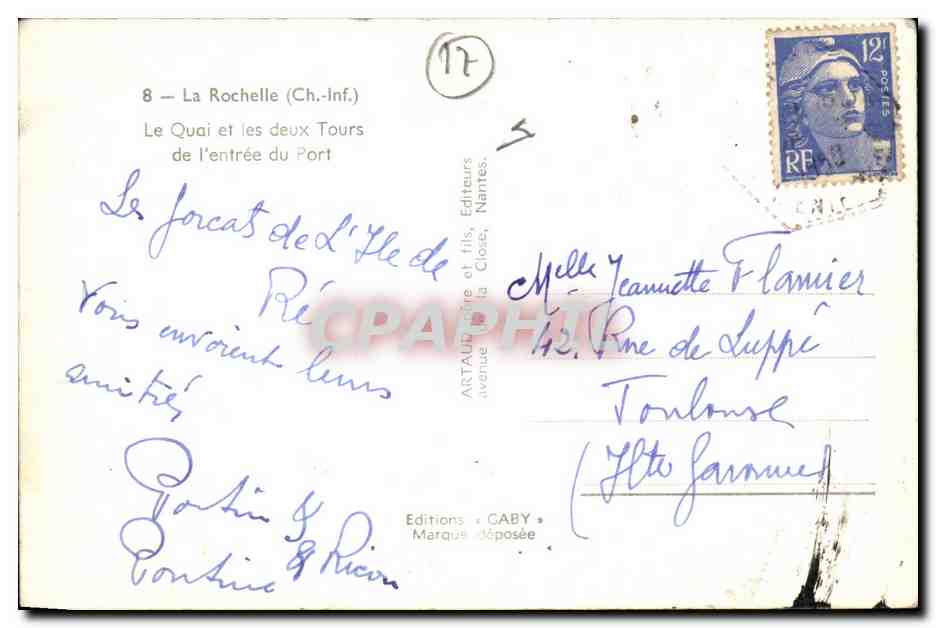 17
8 — La Rochelle (Ch.-Inf.)
Le Quai et les deux Tours
de l'entrée du Port
Les forcats de L'Ile de
Ré
Vous envoient leurs
amitiés
ARTAUD père et fils, Editeurs
avenue de la Close, Nantes.
Editions « GABY »
Marque déposée
12F
POSTES
RF
Melle Jeannette Flamier
42, Rue de Luppé
Toulouse
(Hte Garonne)
CPAPHIL